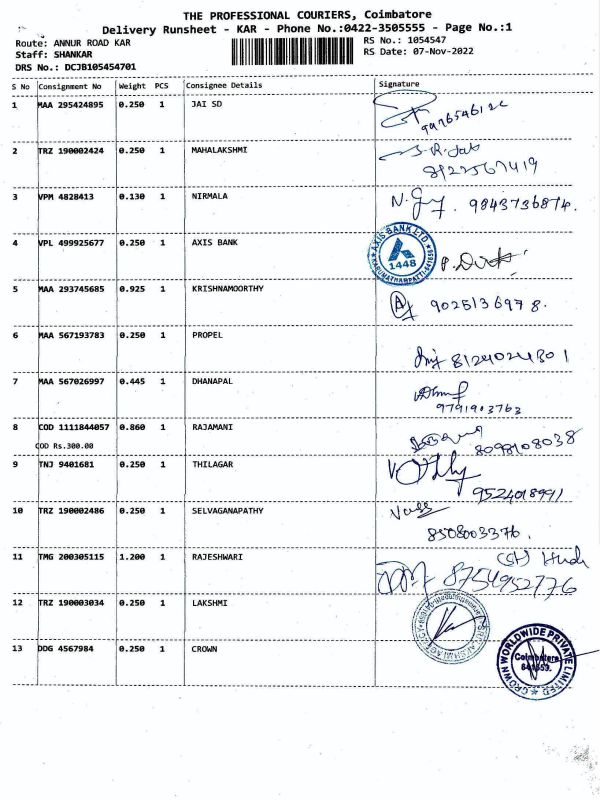 THE PROFESSIONAL COURIERS, Coimbatore
Delivery Runsheet - KAR - Phone No.:0422-3505555 - Page No.:1
Route: ANNUR ROAD KAR
RS No.: 1054547
Staff: SHANKAR
RS Date: 07-Nov-2022
DRS No.: DCJB105454701
S No Consignment No Weight PCS Consignee Details Signature
1 MAA 295424895 0.250 1 JAI SD
2 TRZ 190002424 0.250 1 MAHALAKSHMI
3 VPM 4828413 0.130 1 NIRMALA
9843736874.
4 VPL 499925677 0.250 1 AXIS BANK
AXIS BANK LTD
1448
5 MAA 293745685 0.925 1 KRISHNAMOORTHY
9025136978.
6 MAA 567193783 0.250 1 PROPEL
8124024301
7 MAA 567026997 0.445 1 DHANAPAL
9791903763
8 COD 1111844057 0.860 1 RAJAMANI
COD Rs.300.00
8098108038
9 TNJ 9401681 0.250 1 THILAGAR
9524018991
10 TRZ 190002486 0.250 1 SELVAGANAPATHY
8508003376.
11 TMG 200305115 1.200 1 RAJESHWARI
8754952776
12 TRZ 190003034 0.250 1 LAKSHMI
13 DDG 4567984 0.250 1 CROWN
CROWN WORLDWIDE PRIVATE LIMITED
Coimbatore